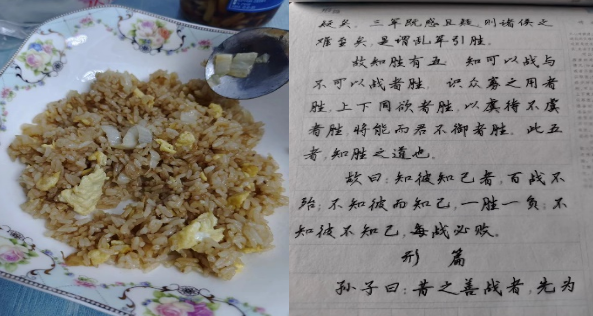 疑矣。三军既惑且疑,则诸侯之
难至矣,是谓乱军引胜。
故知胜有五 知可以战与
不可以战者胜, 识众寡之用者
胜,上下同欲者胜,以虞待不虞
者胜,将能而君不御者胜。此五
者,知胜之道也。
故曰:知彼知己者,百战不
殆;不知彼而知己,一胜一负;不
知彼不知己,每战必败。
形 篇
孙子曰:昔之善战者,先为